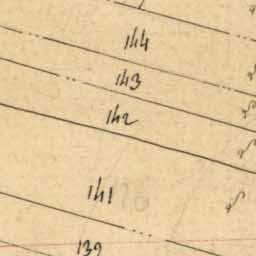 144
143
142
141
139